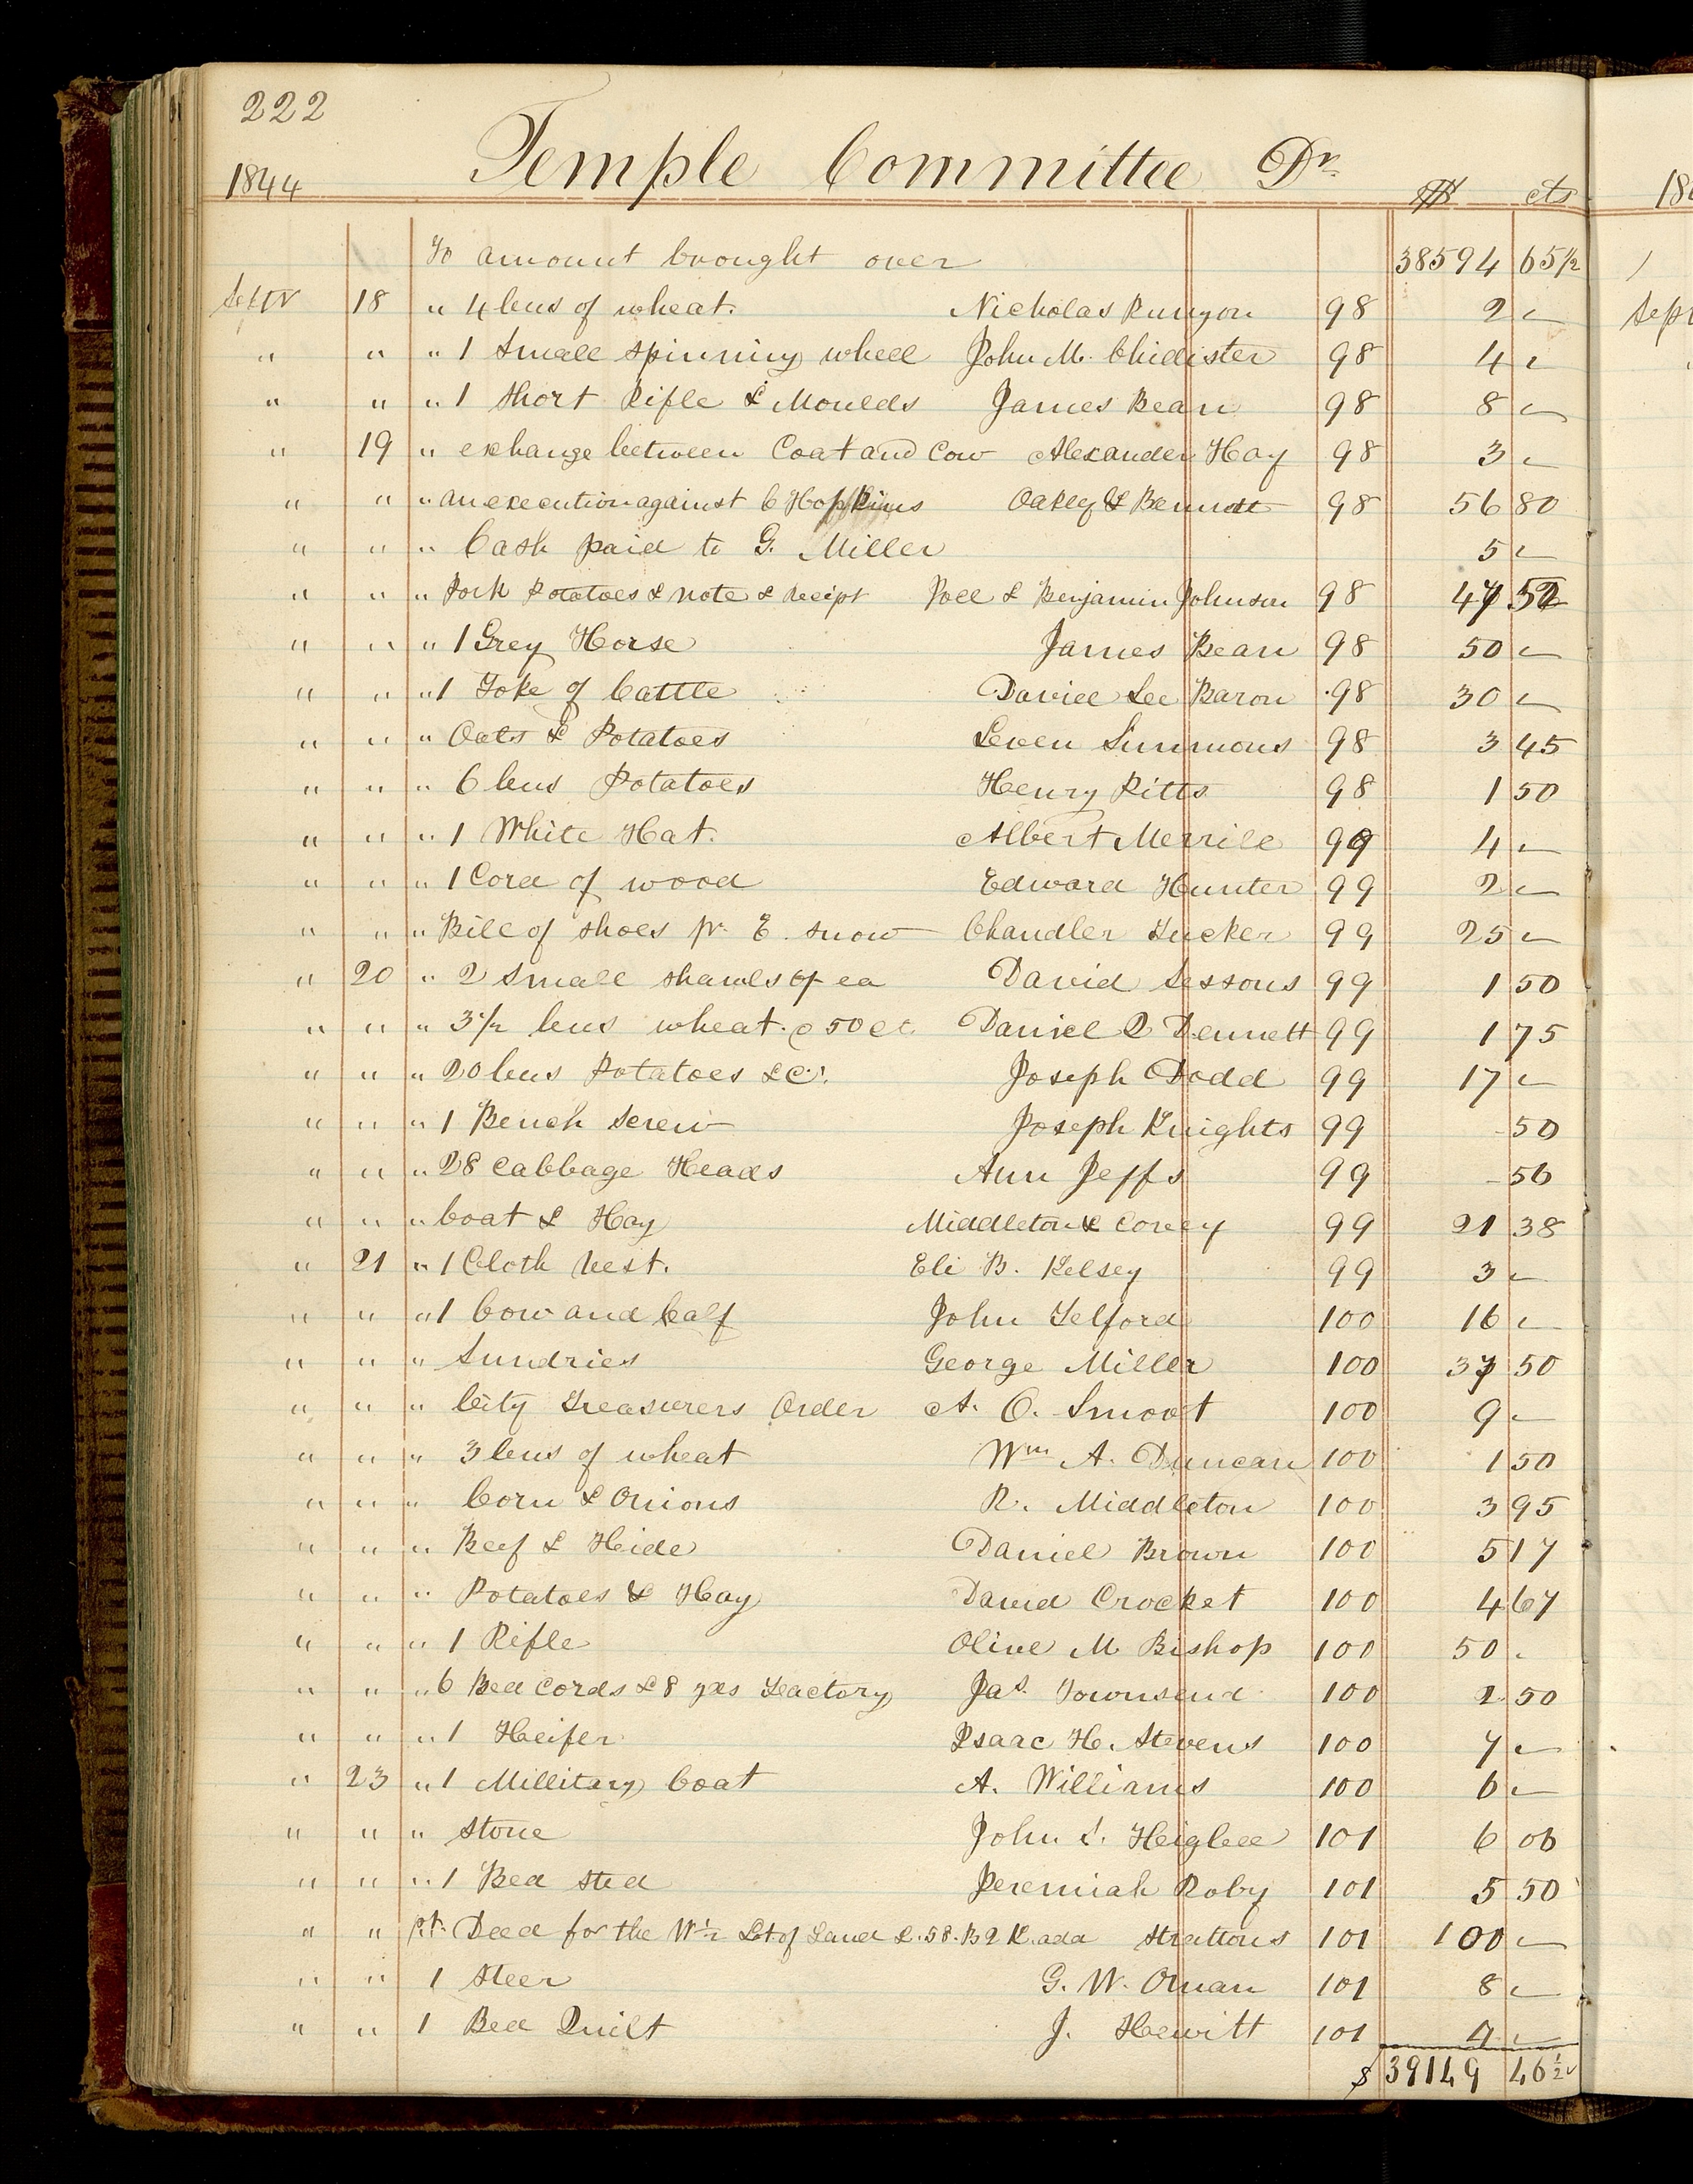 222
1844 Temple Committee Dr. $ cts
To amount brought over 38594 65 1/2
Septr 18 " 4 bus of wheat. Nicholas Runyon 98 2 —
" " " 1 Small spinning wheel John M. Chidister 98 4 —
" " " 1 Short Rifle & Moulds James Bean 98 8 —
" 19 " exchange between Coat and Cow Alexander Hay 98 3 —
" " " an execution against C Hopkins Oakley & Bennett 98 56 80
" " " Cash paid to G. Miller 5 —
" " " Pork Potatoes & note & receipt Joel & Benjamin Johnson 98 47 52
" " " 1 Grey Horse James Bean 98 50 —
" " " 1 Yoke of Cattle David Lee Baron 98 30 —
" " " Oats & Potatoes Leven Simmons 98 3 45
" " " 6 bus Potatoes Henry Pitts 98 1 50
" " " 1 White Hat. Albert Merrill 99 4 —
" " " 1 Cord of wood Edward Hunter 99 2 —
" " " Bill of shoes pr. E. Snow Chandler Tucker 99 25 —
" 20 " 2 Small shawls of ea David Sessons 99 1 50
" " " 3 1/2 bus wheat @ 50 ct Daniel Q Dennett 99 1 75
" " " 20 bus Potatoes &C. Joseph Dodd 99 17 —
" " " 1 Bench Screw Joseph Knights 99 - 50
" " " 28 Cabbage Heads Ann Jeffs 99 - 56
" " " Coat & Hay Middleton & Corey 99 21 38
" 21 " 1 Cloth Vest. Eli B. Kelsey 99 3 —
" " " 1 Cow and Calf John Telford 100 16 —
" " " Sundries George Miller 100 37 50
" " " City Treasurers Order A. O. Smoot 100 9 —
" " " 3 bus of wheat Wm A. Duncan 100 1 50
" " " Corn & Onions R. Middleton 100 3 95
" " " Beef & Hide Daniel Brown 100 5 17
" " " Potatoes & Hay David Crocket 100 4 67
" " " 1 Rifle Olive M Bishop 100 50 -
" " " 6 Bed Cords & 8 yds Factory Jas. Townsend 100 2 50
" " " 1 Heifer Isaac H. Stevens 100 7 —
" 23 " 1 Millitary Coat A. Williams 100 6 —
" " " Stone John S. Higbee 101 6 06
" " " 1 Bed sted Jeremiah Roby 101 5 50
" " pt. Deed for the W 1/2 Lot of Land L. 58. B 2 K. ada Strattons 101 100 —
" " 1 Steer G. W. Oman 101 8 —
" " 1 Bed Quilt J. Hewitt 101 4 —
$ 39149 46 1/2